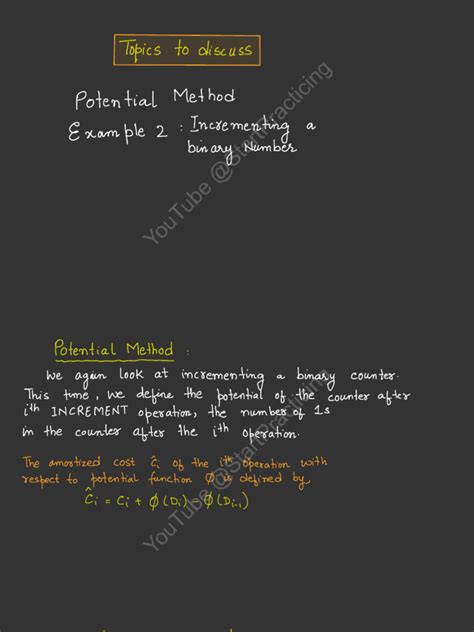 Topics to discuss
Potential Method
Example 2 : Incrementing a
binary Number
YouTube @StartPracticing
Potential Method :
We again look at incrementing a binary counter.
This time, we define the potential of the counter after
ith INCREMENT operation, the number of 1s
in the counter after the ith operation.
The amortized cost ĉi of the ith operation with
respect to potential function Φ is defined by,
Ĉi = Ci + Φ(Di) - Φ(Di-1)
YouTube @StartPracticing